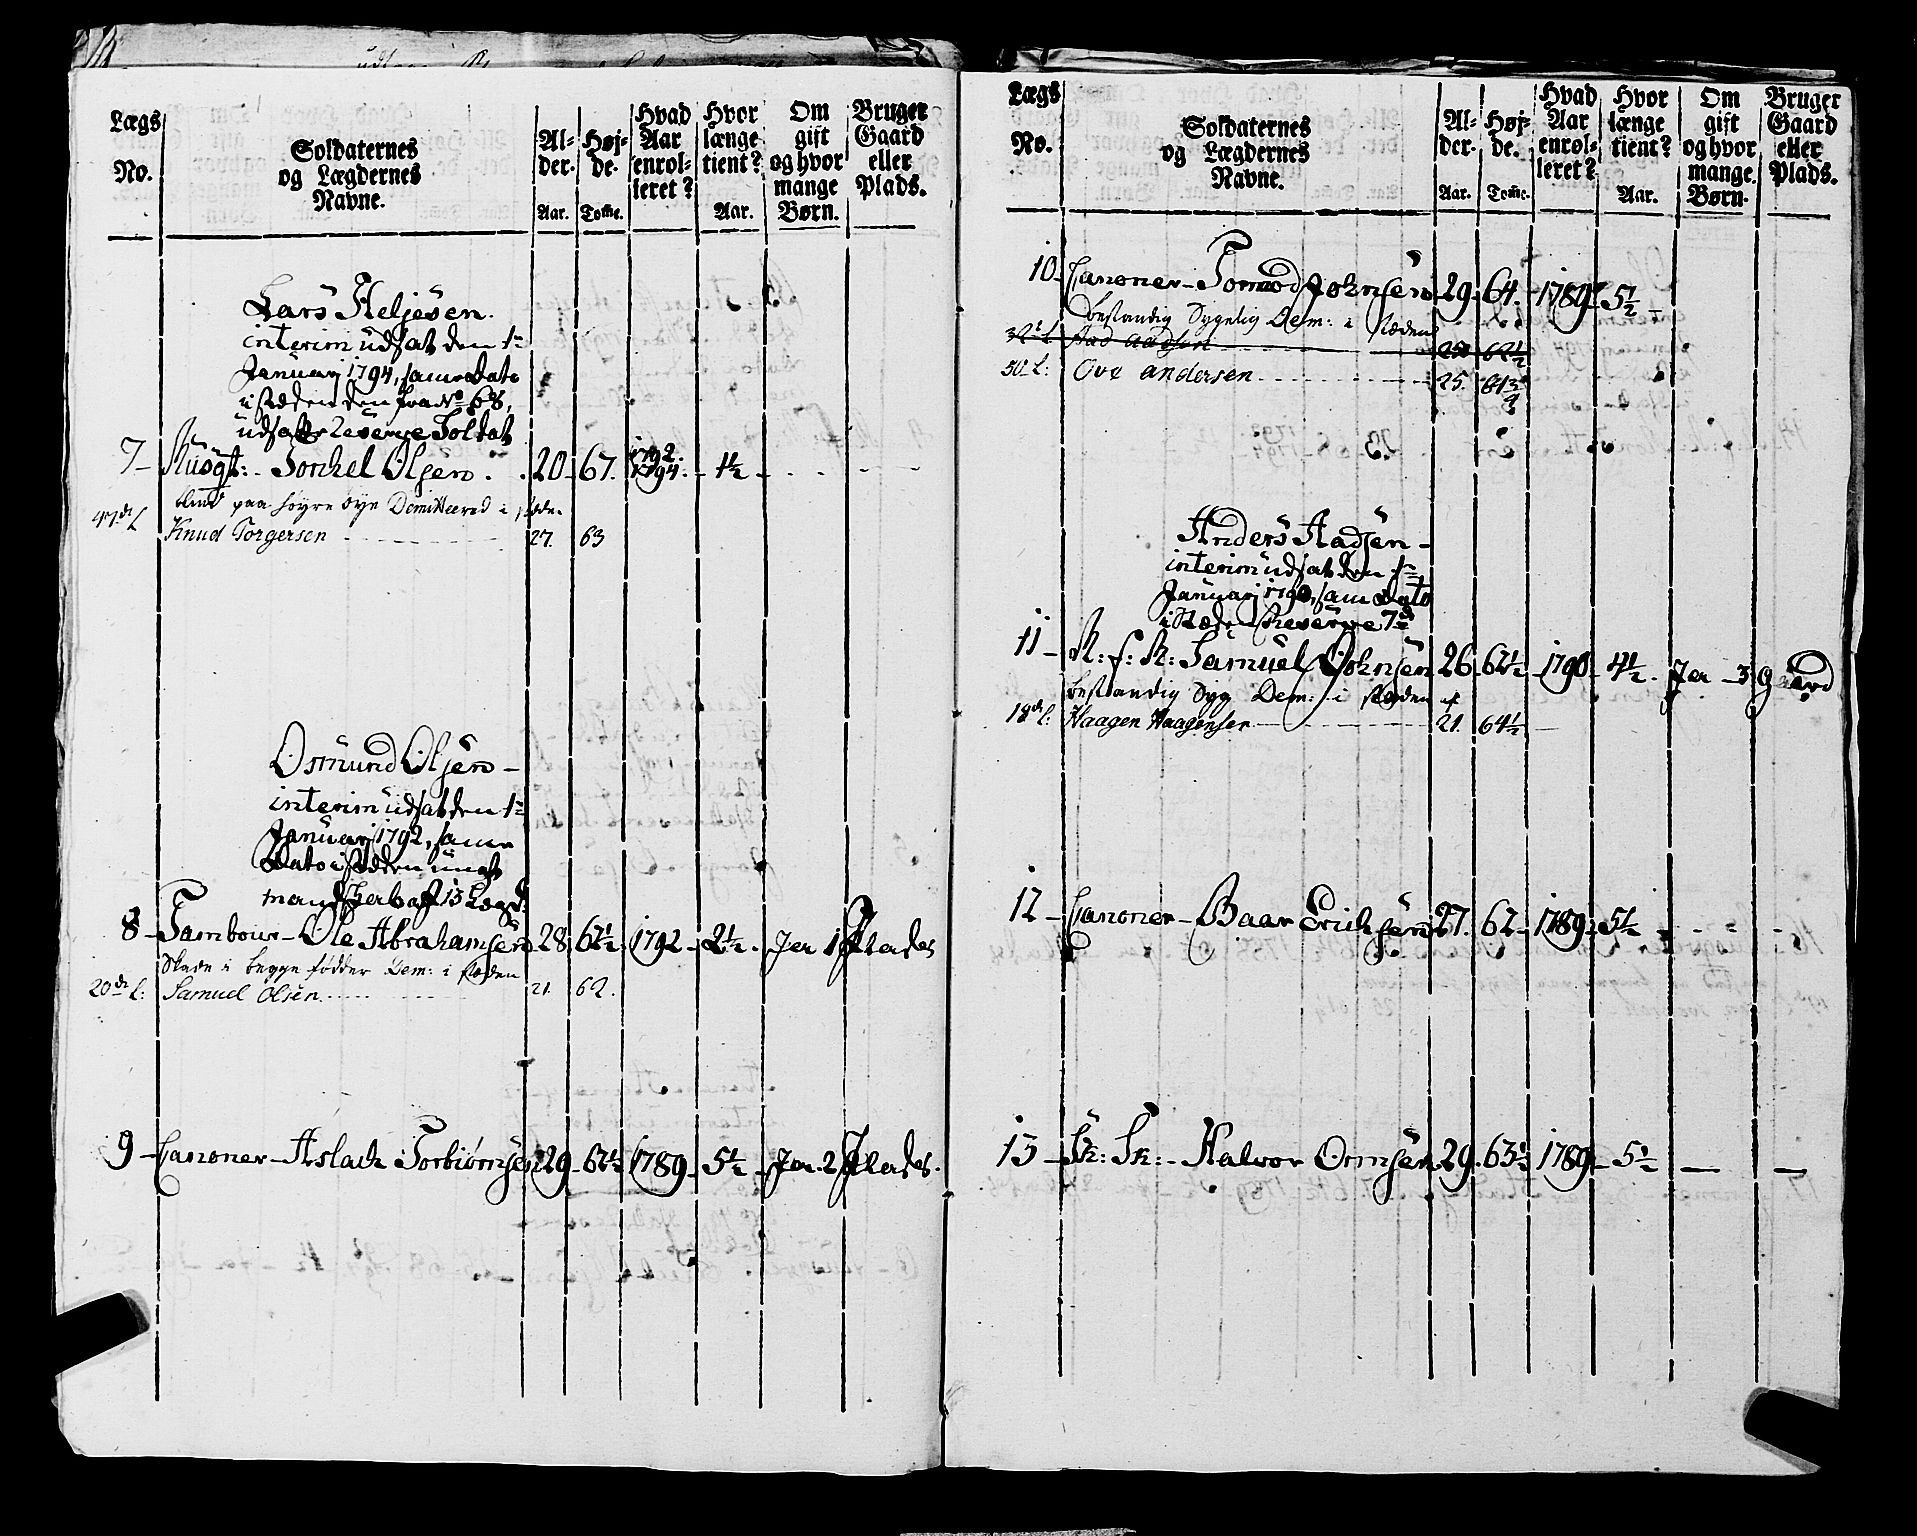 Lægs No.
Soldaternes og Lægdernes Navne.
Al- der. Aar.
Høj- de. Tom̃e.
Hvad Aar enrol- leret?
Hvor længe tient? Aar.
Om gift og hvor mange Børn.
Bruger Gaard eller Plads.
Lars Heljesen.
interim udsat den 1ᵗᵉ
Januarj 1794, samme Dato
i stæden den fra No 68,
udsatte Reserve Soldat
7 - Musqt: - Tonkel Olsen. 20 - 67. 1792. 1794. - 1½ -
blind paa høyre øye Demitteered i stæden
47.de L Knud Torgersen 27. 63
Osmund Olsen -
interim udsat den 1ᵗᵉ
Januarj 1792, samme
Dato i stæden ungt
mandskab af 15 Lægd:
8 - Tambour - Ole Abrahamsen 28. 62½. 1792 - 2½. Jer 1 Plades
Skade i begge fødder Dem: i stæden
20de L: Samuel Olsen 21. 62.
9 - Canoner - Aslach Torbiørnsen 29 - 62½ 1789 - 5½ - Jer. 2 Plades.
Lægs No.
Soldaternes og Lægdernes Navne.
Al- der. Aar.
Høj- de. Tom̃e.
Hvad Aar enrol- leret?
Hvor længe tient? Aar.
Om gift og hvor mange Børn.
Bruger Gaard eller Plads.
10 - Canoner - Tomod Johnsen 29. 64. - 1789 - 5½
bestandig Sygelig Dem: i stæden
Aad Aadsen 62½
50 L: Ove Andersen 25. 61¾
Anders Aadsen -
interim udsat den 1ᵗᵉ
Januarj 1790, samme Dato
i stæden Reserve 7de
11 - R: f: R: Samuel Johnsen 26. 62½ - 1790 - 4½. Jer - 3. Gaard
bestandig Syg Dem: i stæden af
18de L: Haagen Haagensen 21. 64½
12 - Canoner - Baar Erichsen 27. 62 - 1789. 5½
13 - Sk: Sk: - Halvor Ormsen. 29. 63½ 1789 - 5½ - -